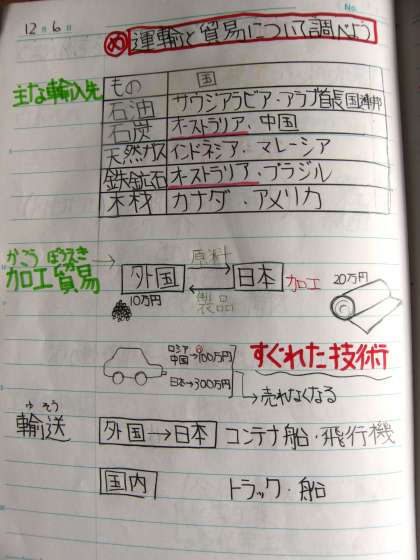 No.
12月6日
め 運輸と貿易について調べよう
主な輸入先
もの 国
石油 サウジアラビア・アラブ首長国連邦
石炭 オーストラリア・中国
天然ガス インドネシア・マレーシア
鉄鉱石 オーストラリア・ブラジル
木材 カナダ・アメリカ
かこうぼうえき
加工貿易 → 外国 原料 日本 加工 20万円
10万円 製品
ロシア
中国→100万円 すぐれた技術
日本→300万円 →売れなくなる
ゆそう
輸送 外国→日本 コンテナ船・飛行機
国内 トラック・船